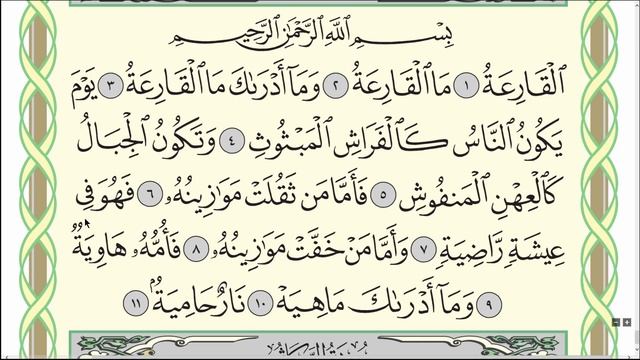 بِسْمِ اللَّهِ الرَّحْمَٰنِ الرَّحِيمِ
الْقَارِعَةُ ١ مَا الْقَارِعَةُ ٢ وَمَا أَدْرَىٰكَ مَا الْقَارِعَةُ ٣ يَوْمَ
يَكُونُ النَّاسُ كَالْفَرَاشِ الْمَبْثُوثِ ٤ وَتَكُونُ الْجِبَالُ
كَالْعِهْنِ الْمَنفُوشِ ٥ فَأَمَّا مَن ثَقُلَتْ مَوَٰزِينُهُۥ ٦ فَهُوَ فِى
عِيشَةٍ رَّاضِيَةٍ ٧ وَأَمَّا مَنْ خَفَّتْ مَوَٰزِينُهُۥ ٨ فَأُمُّهُۥ هَاوِيَةٌ
٩ وَمَا أَدْرَىٰكَ مَا هِيَهْ ١٠ نَارٌ حَامِيَةٌۢ ١١